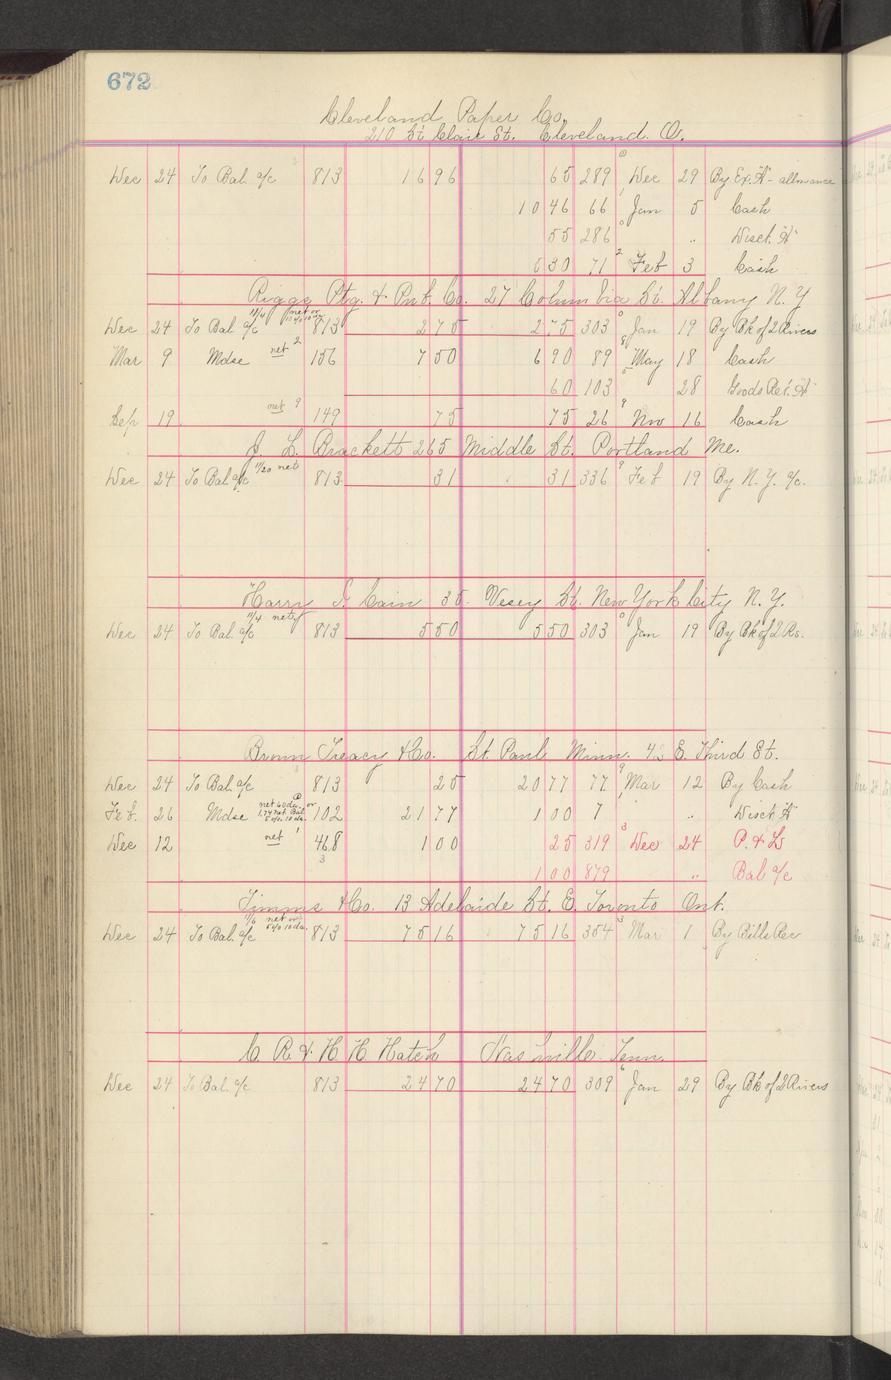 672
Cleveland Paper Co.
210 St Clair St. Cleveland. O.
Dec 24 To Bal. a/c 813 16 96 65 289 Dec 29 By Ex. "A" allowance
10 46 66 Jan 5 Cash
55 286 " Disct. "A"
6 30 71 Feb 3 Cash
Riggs Ptg. & Pub. Co. 27 Columbia St. Albany N. Y
Dec 24 To Bal a/c 11/4 813 2 75 2 75 303 Jan 19 By Bk of 2 Rivers
Mar 9 Mdse net 156 7 50 6 90 89 May 18 Cash
60 103 28 Goods Ret. "A"
Sep 19 net 149 75 75 26 Nov 16 Cash
J. L. Brackett 265 Middle St. Portland Me.
Dec 24 To Bal. a/c 11/20 net 813 31 31 336 Feb 19 By N. Y. a/c.
Harry S. Cain 35 Vesey St. New York City N. Y.
Dec 24 To Bal. a/c 11/4 net 813 5 50 5 50 303 Jan 19 By Bk of 2 Rs.
Brown Treacy & Co. St Paul Minn. 42 E. Third St.
Dec 24 To Bal. a/c 813 25 20 77 77 Mar 12 By Cash
Feb. 26 Mdse net 60 da. or 102 21 77 1 00 7 " Disct "A"
Dec 12 net 468 1 00 25 319 Dec 24 P. & L.
1 00 879 " Bal a/c
Timms & Co. 13 Adelaide St. E. Toronto Ont.
Dec 24 To Bal. a/c net or 5% 10 da. 813 75 16 75 16 354 Mar 1 By Bills Rec
C. R. & H H Hatch Nashville Tenn.
Dec 24 To Bal. a/c 813 24 70 24 70 309 Jan 29 By Bk of 2 Rivers